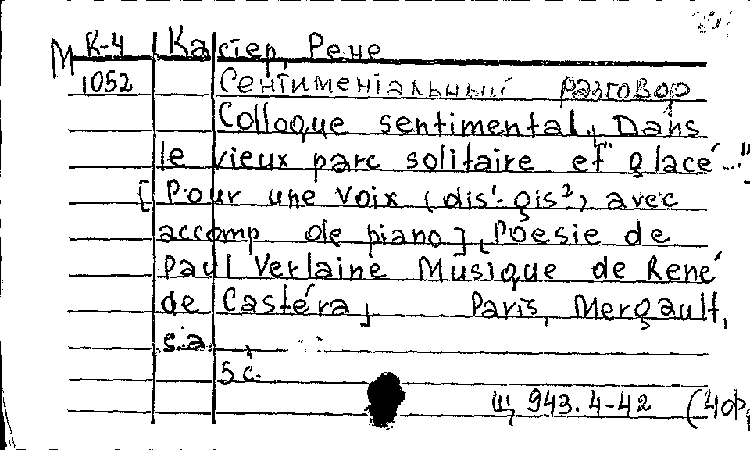 М К-4 Кастер, Рене
1052 Сентиментальный разговор
Colloque sentimental, „Dans
le vieux parc solitaire et glacé..."
[Pour une voix (dis¹-gis²) avec
accomp de piano], [Poesie de
Paul Verlaine Musique de René
de Castéra] Paris, Mergault,
s.a.
5 с.
Щ 943.4-42 (Чор,